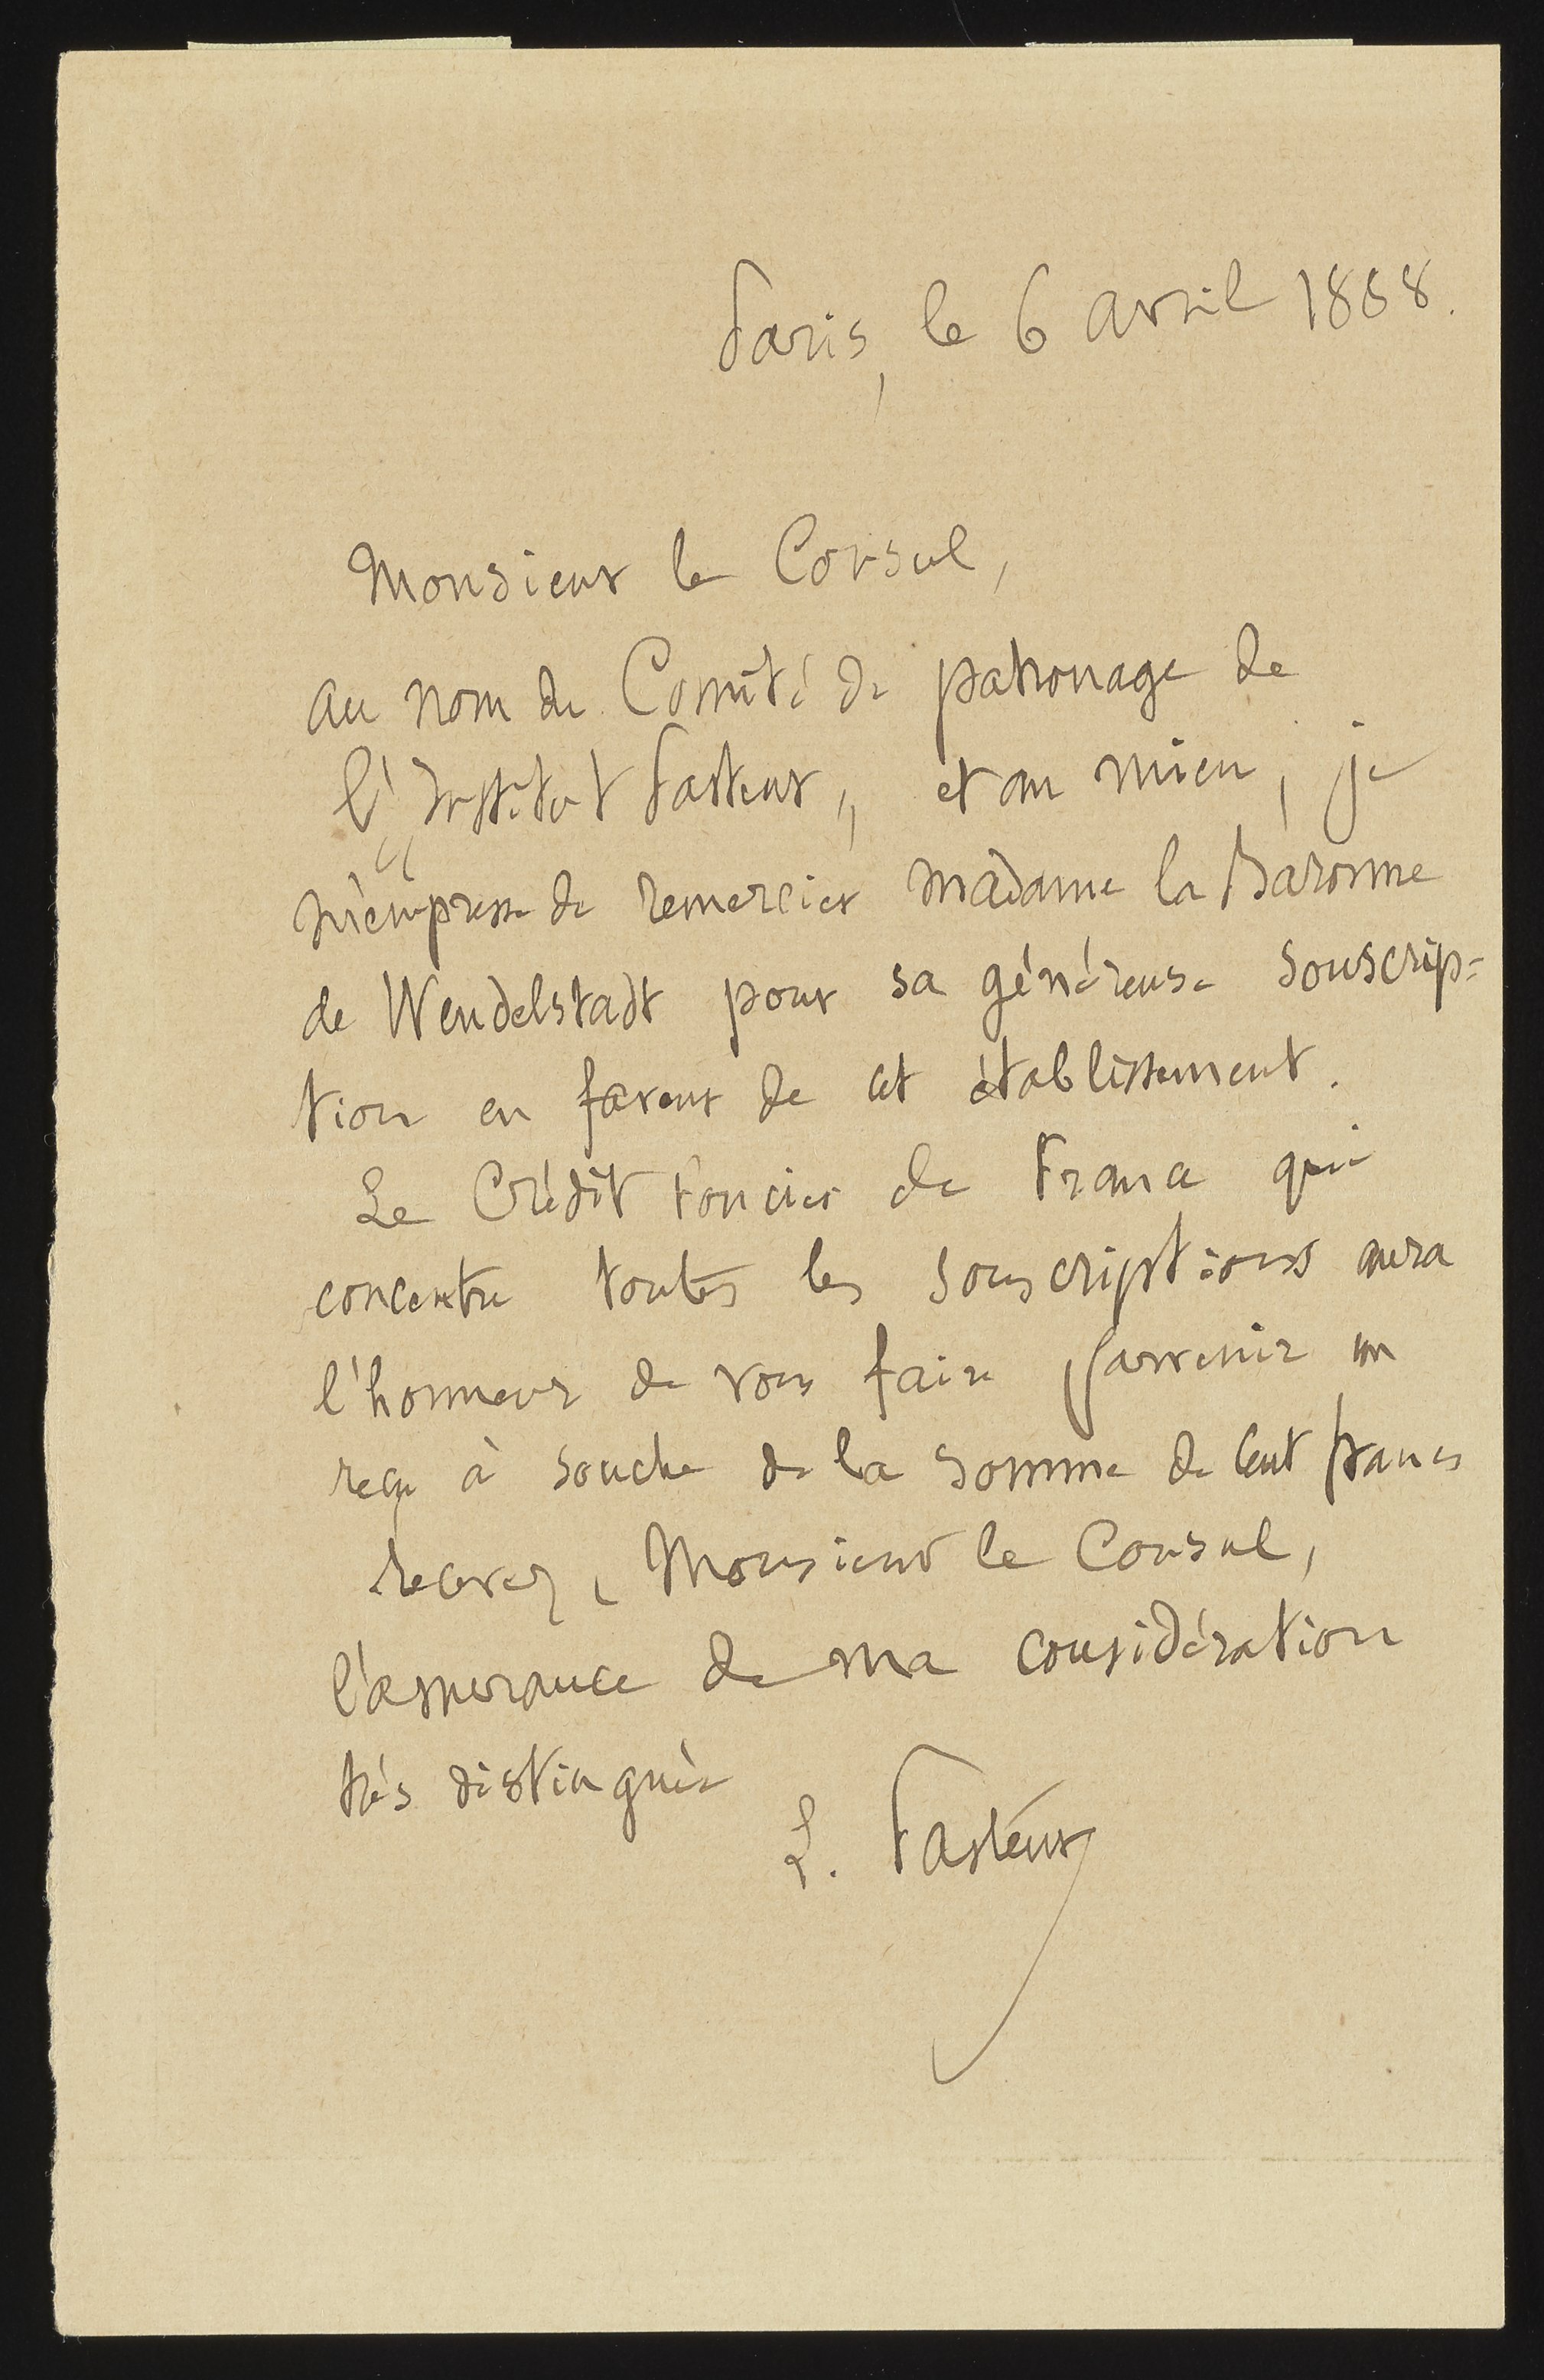 Paris, le 6 avril 1888.
Monsieur le Consul,
au nom du Comité de patronage de
l'"Institut Pasteur", et au mien, je
m'empresse de remercier Madame la Baronne
de Wendelstadt pour sa généreuse souscrip=
tion en faveur de cet établissement.
Le Crédit foncier de France qui
concentre toutes les souscriptions aura
l'honneur de vous faire parvenir un
reçu à souche de la somme de cent francs
Recevez, Monsieur le Consul,
l'assurance de ma considération
très distinguée
L. Pasteur